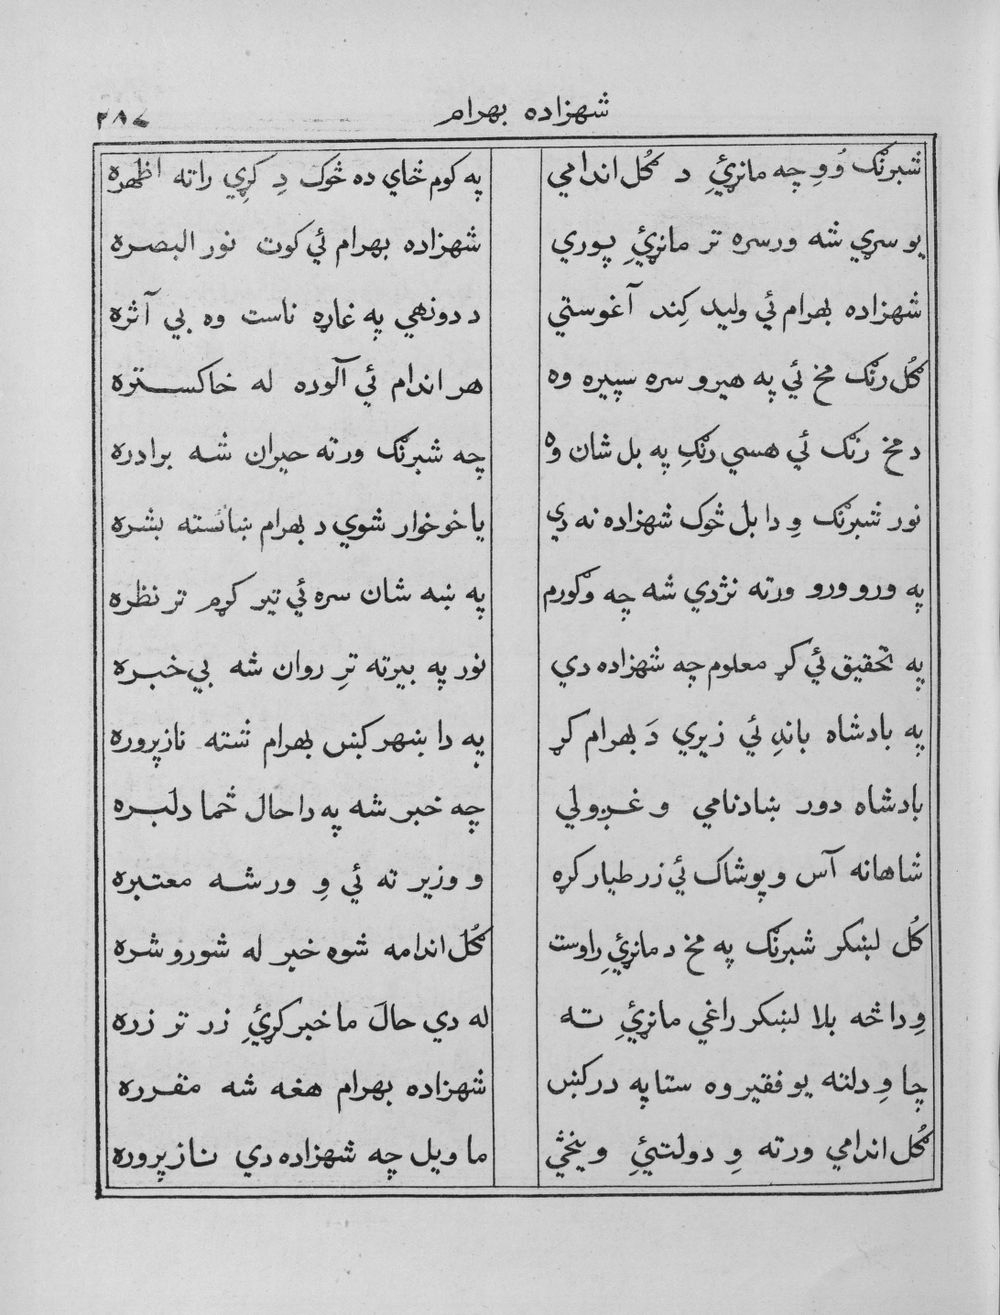 شهزاده بهرام
۲۸۷
شبرنګ وُوِ چه مانړئِ د ګُل اندامي
په کوم ځاي ده څوک دِ کړِي راته اظهره
يو سړي شه ورسره تر مانړئِ پوري
شهزاده بهرام ئي کوت نور البصره
شهزاده بهرام ئي وليد کِند آغوستي
د دونهي په غاړه ناست وه بي آثره
ګُل رنګ مخ ئي په هيرو سره سپيره وه
هر اندام ئي آلوده له خاکستره
د مخ رنګ ئي هسي رنګِ په بل شان وه
چه شبرنګ ورته حيران شه برادره
نور شبرنګ وِ دا بل څوک شهزاده نه دي
يا خو خوار شوي د بهرام ښائسته بشره
په ورو ورو ورته نژدي شه چه وګورم
په ښه شان سره ئي تير کړم تر نظره
په تحقيق ئي کړ معلوم چه شهزاده دي
نور په بيرته ترِ روان شه بي خبره
په بادشاه باندِ ئي زيري دَ بهرام کړ
په دا ښهر کښ بهرام شته نازپروره
بادشاه دور ښادنامي و غږولي
چه خبر شه په دا حال ځما دلبره
شاهانه آس و پوشاک ئي زر طيار کړه
و وزير ته ئي وِ ورشه معتبره
کُل لښکر شبرنګ په مخ د مانړئِ راوست
ګُل اندامه شوه خبر له شورو شره
وِ دا څه بلا لښکر راغي مانړئِ ته
له دي حال ما خبر کړئِ زر تر زره
چا وِ دلته يو فقير وه ستا په در کښ
شهزاده بهرام هغه شه مقرره
ګُل اندامي ورته وِ دولتئِ وينځي
ما ويل چه شهزاده دي نازپروره